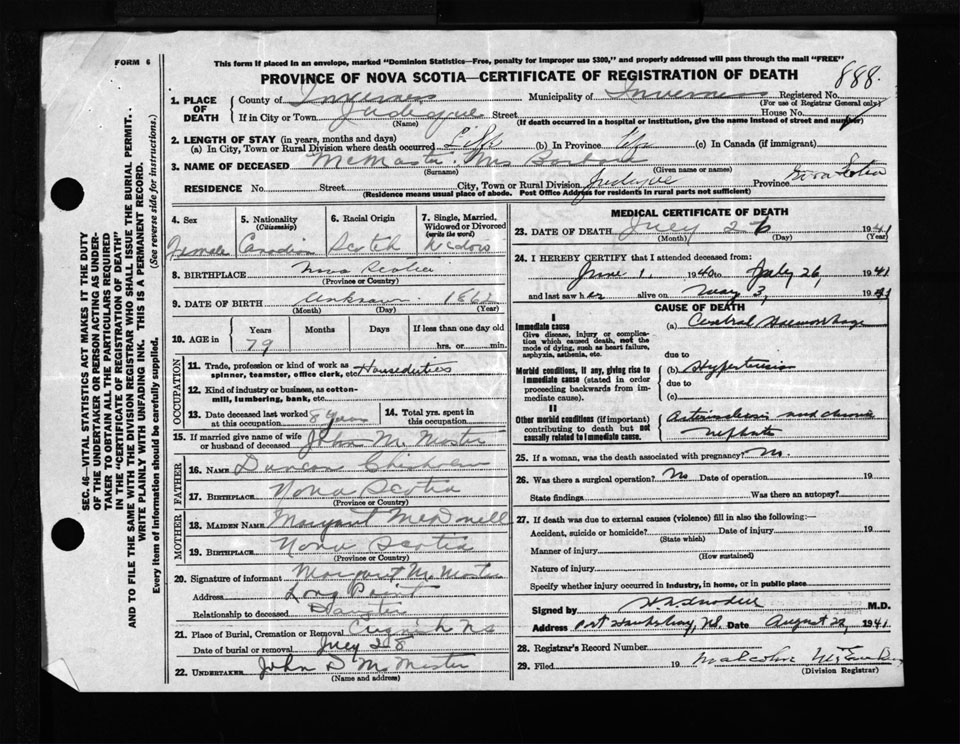 FORM 6
This form if placed in an envelope, marked "Dominion Statistics—Free, penalty for improper use $300," and properly addressed will pass through the mail "FREE"
PROVINCE OF NOVA SCOTIA—CERTIFICATE OF REGISTRATION OF DEATH
888.
SEC. 46—VITAL STATISTICS ACT MAKES IT THE DUTY
OF THE UNDERTAKER OR PERSON ACTING AS UNDER-
TAKER TO OBTAIN ALL THE PARTICULARS REQUIRED
IN THE "CERTIFICATE OF REGISTRATION OF DEATH"
AND TO FILE THE SAME WITH THE DIVISION REGISTRAR WHO SHALL ISSUE THE BURIAL PERMIT.
WRITE PLAINLY WITH UNFADING INK. THIS IS A PERMANENT RECORD.
Every item of information should be carefully supplied. (See reverse side for instructions.)
1. PLACE OF DEATH
County of Inverness Municipality of Inverness Registered No.
(For use of Registrar General only)
If in City or Town Judique Street House No.
(Name) (If death occurred in a hospital or institution, give the name instead of street and number)
2. LENGTH OF STAY (in years, months and days)
(a) In City, Town or Rural Division where death occurred Life (b) In Province Life (c) In Canada (if immigrant)
3. NAME OF DECEASED McMaster Mrs Barbara
(Surname) (Given name or names)
RESIDENCE No. Street City, Town or Rural Division Judique Province Nova Scotia
(Residence means usual place of abode. Post Office Address for residents in rural parts not sufficient)
4. Sex Female
5. Nationality (Citizenship) Canadian
6. Racial Origin Scotch
7. Single, Married, Widowed or Divorced (write the word) Widow
8. BIRTHPLACE Nova Scotia
(Province or Country)
9. DATE OF BIRTH Unknown 1862
(Month) (Day) (Year)
10. AGE in Years Months Days If less than one day old
79 hrs. or min.
OCCUPATION
11. Trade, profession or kind of work as spinner, teamster, office clerk, etc. Houseduties
12. Kind of industry or business, as cotton-mill, lumbering, bank, etc.
13. Date deceased last worked at this occupation 8 years
14. Total yrs. spent in this occupation
15. If married give name of wife or husband of deceased John McMaster
FATHER
16. NAME Duncan Chisholm
17. BIRTHPLACE Nova Scotia
(Province or Country)
MOTHER
18. MAIDEN NAME Margaret McDonell
19. BIRTHPLACE Nova Scotia
(Province or Country)
20. Signature of informant Margaret McMaster
Address Long Point
Relationship to deceased Daughter
21. Place of Burial, Cremation or Removal Creignish NS
Date of burial or removal July 28
22. UNDERTAKER John D McMaster
(Name and address)
MEDICAL CERTIFICATE OF DEATH
23. DATE OF DEATH July 26 1941
(Month) (Day) (Year)
24. I HEREBY CERTIFY that I attended deceased from:
June 1, 1940 to July 26, 1941
and last saw her alive on May 3, 1941
CAUSE OF DEATH
I
Immediate cause
Give disease, injury or complication which caused death, not the mode of dying, such as heart failure, asphyxia, asthenia, etc.
(a) Cerebral Haemorrhage
due to
Morbid conditions, if any, giving rise to immediate cause (stated in order proceeding backwards from immediate cause).
(b) Hypertension
due to
(c)
II
Other morbid conditions (if important) contributing to death but not causally related to immediate cause.
Arteriosclerosis and chronic
Nephritis
25. If a woman, was the death associated with pregnancy? No.
26. Was there a surgical operation? No Date of operation 19
State findings Was there an autopsy?
27. If death was due to external causes (violence) fill in also the following:—
Accident, suicide or homicide? Date of injury 19
(State which)
Manner of injury
(How sustained)
Nature of injury
Specify whether injury occurred in industry, in home, or in public place
Signed by M.D.
Address Port Hawkesbury, NS. Date August 22, 1941
28. Registrar's Record Number
29. Filed 19 Malcolm
(Division Registrar)